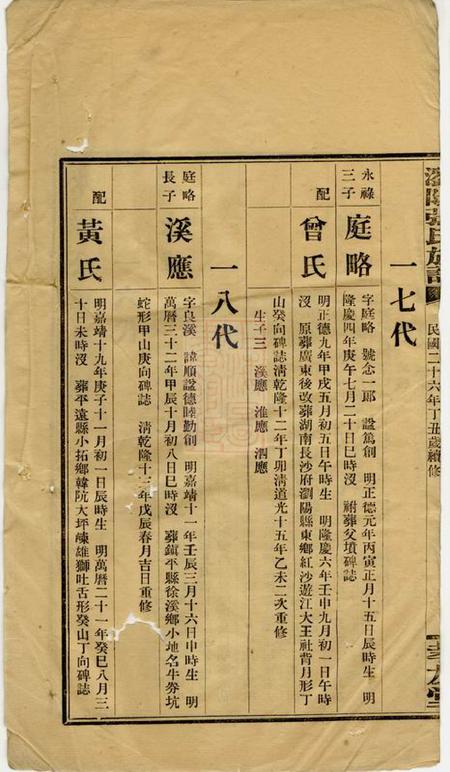 瀏陽張氏族譜
民國二十六年丁丑歲續修
孝友堂
一七代
永祿三子
庭略
字庭略 號念一郎 諡篤創 明正德元年丙寅正月十五日辰時生 明
隆慶四年庚午七月二十日巳時沒 祔葬父墳碑誌
配
曾氏
明正德九年甲戌五月初五日午時生 明隆慶六年壬申九月初一日午時
沒 原葬廣東後改葬湖南長沙府瀏陽縣東鄉紅沙遊江大王社背月形丁
山癸向碑誌清乾隆十二年丁卯清道光十五年乙未二次重修
生子三 溪應 淮應 泗應
一八代
庭略長子
溪應
字良溪 諱順諡德睦勤創 明嘉靖十一年壬辰三月十六日申時生 明
萬曆三十二年甲辰十月初八日巳時沒 葬鎮平縣徐溪鄉小地名牛劵坑
蛇形甲山庚向碑誌 清乾隆十三年戊辰春月吉日重修
配
黃氏
明嘉靖十九年庚子十一月初一日辰時生 明萬曆二十一年癸巳八月三
十日未時沒 葬平遠縣小拓鄉韓阬大坪雄獅吐舌形癸山丁向碑誌